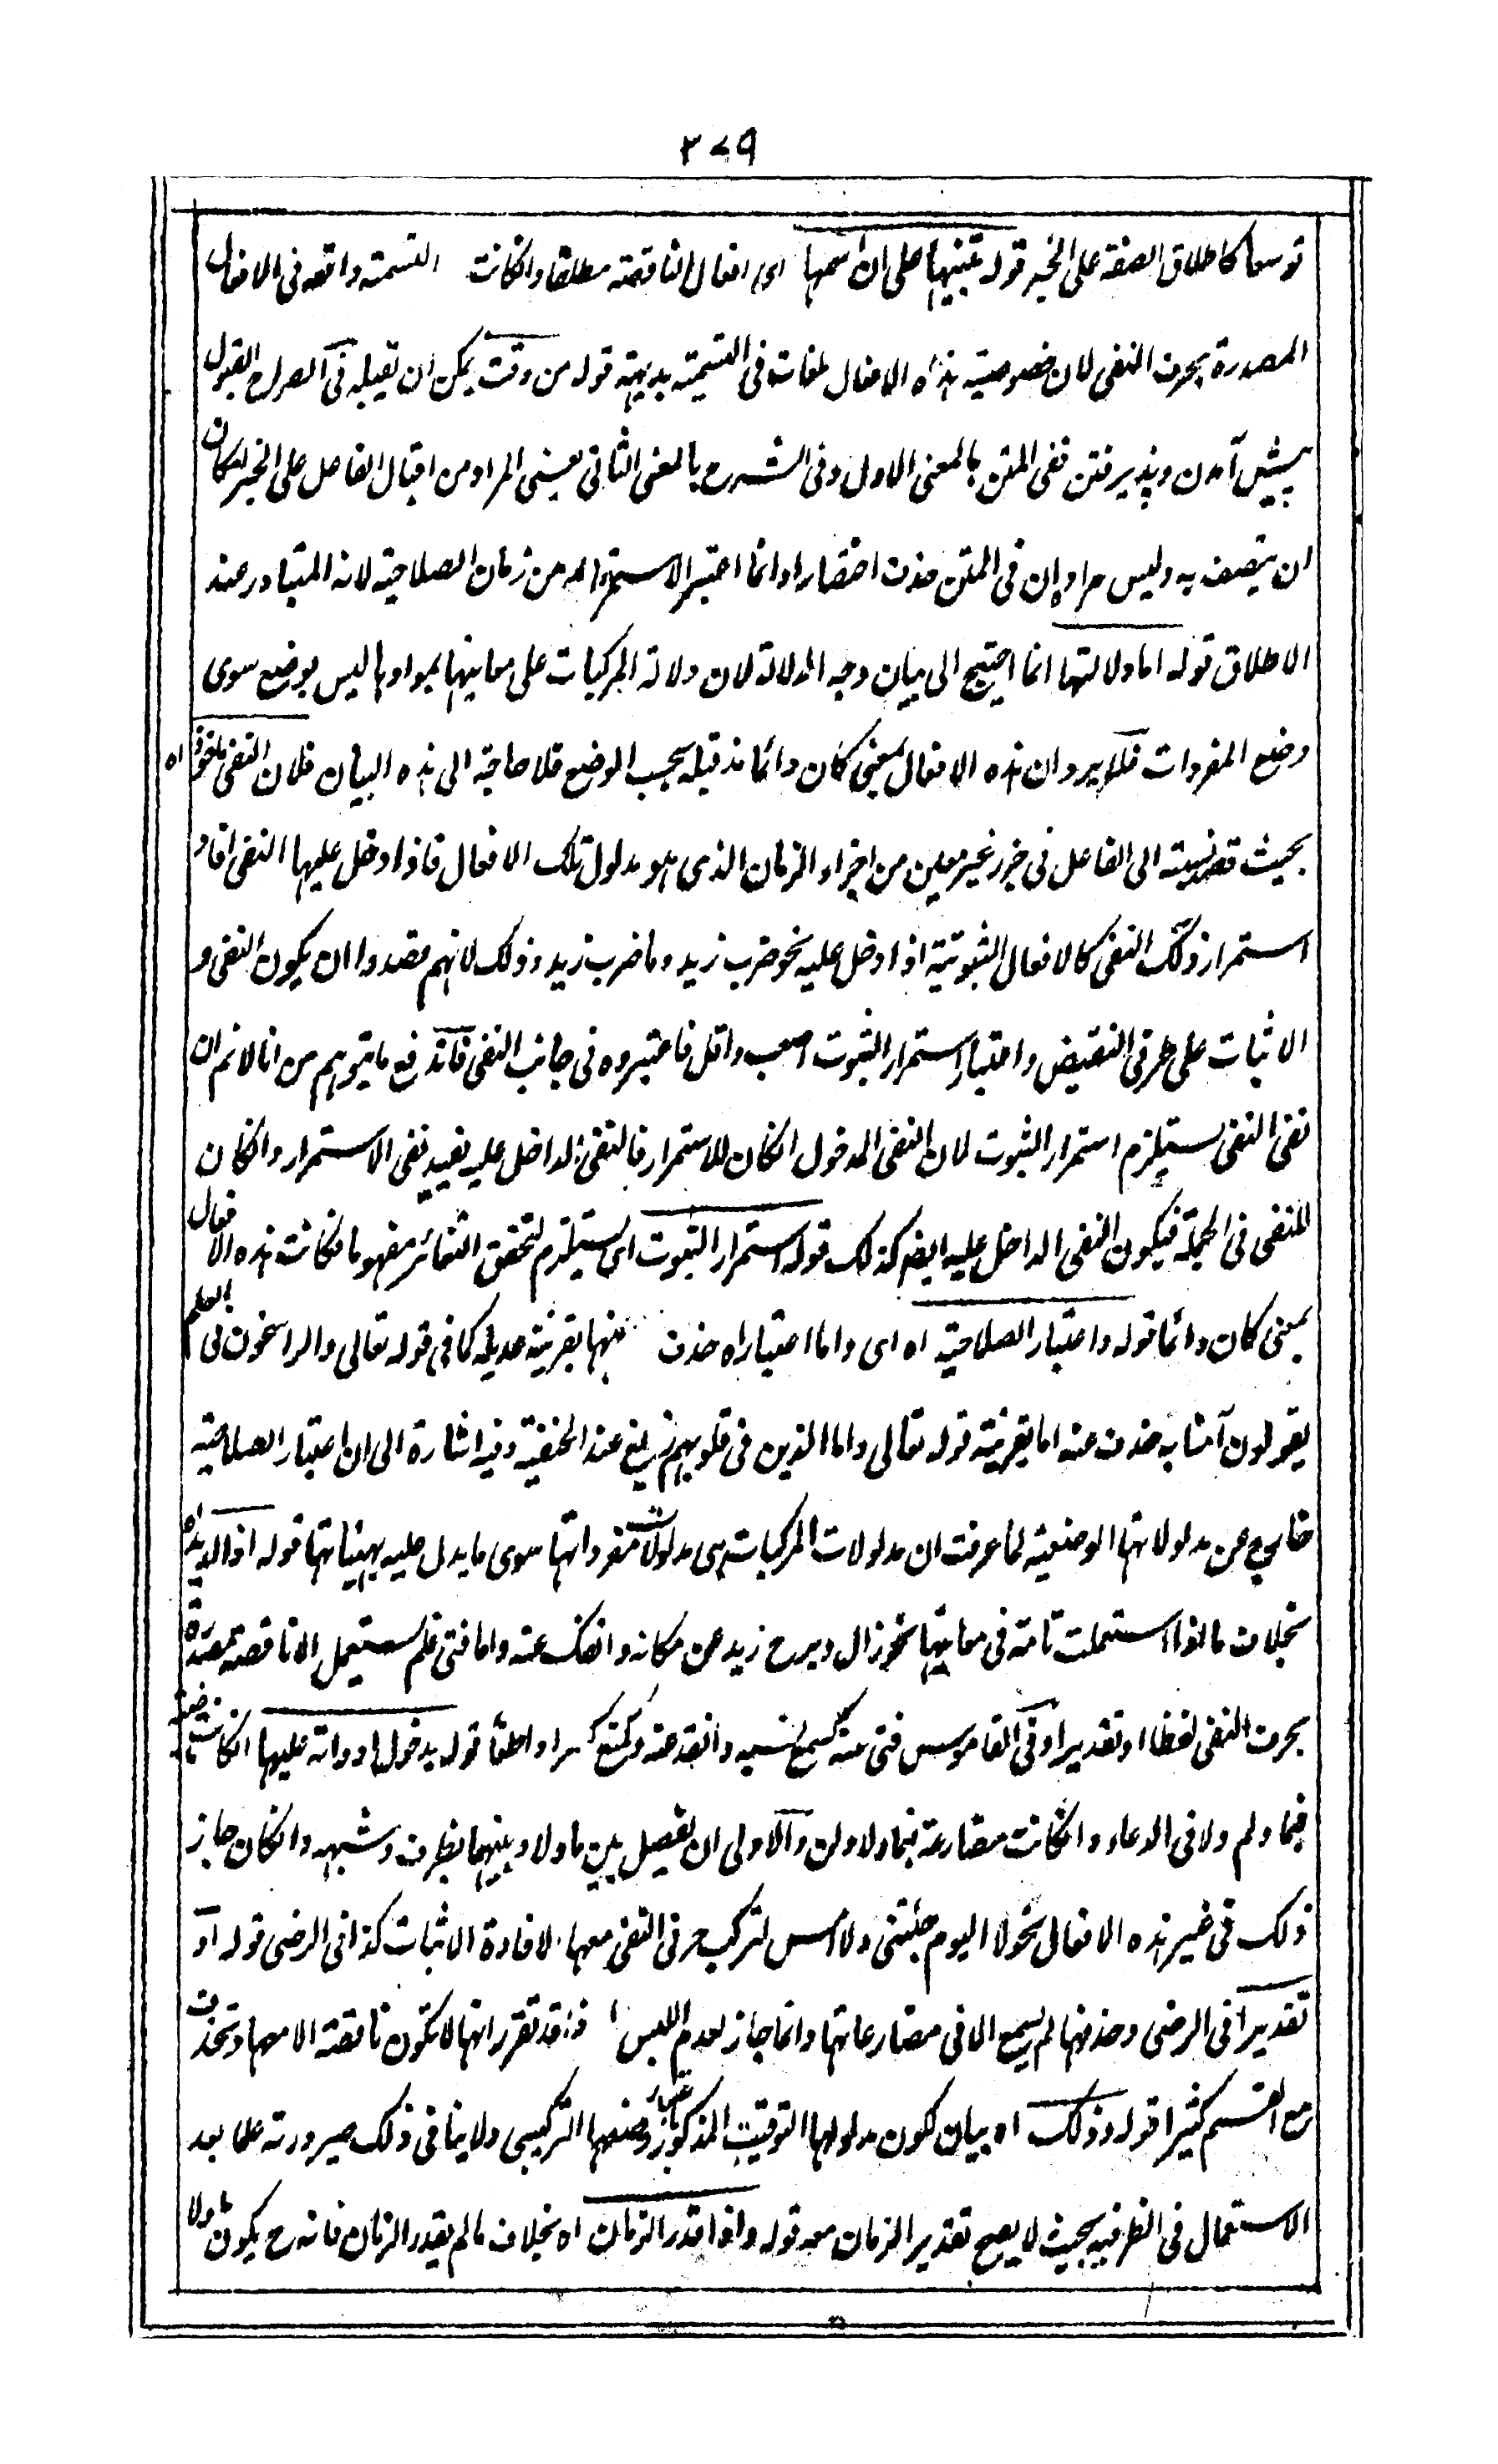 ٣٧٩
توسعا كاطلاق الصفة على الخبر قوله تنبيها على ان اسمها اى افعال الناقصة مطلقا وانكانت التسمية واقعة فى الافعال
المصدرة بحرف النفى لان خصوصية هذه الافعال ملغاة فى التسمية بديهة قوله من وقت يمكن ان تقبله فى الصراح القبول
پيش آمدن وپذيرفتن ففى المتن بالمعنى الاول وفى الشرح بالمعنى الثانى يعنى المراد من اقبال الفاعل على الخبر امكان
ان يتصف به وليس مراده ان فى المتن حذف اختصارا وانما اعتبر الاستمرار من زمان الصلاحية لانه المتبادر عند
الاطلاق قوله اما دلالتها انما احتيج الى بيان وجه الدلالة لان دلالة المركبات على معانيها بموادها ليس بوضع سوى
وضع المفردات فلا يرد ان هذه الافعال بمعنى كان دائما مذ قبله بحسب الوضع فلا حاجة الى هذه البيان فلان النفى ماخوذ اه
بحيث قصد نسبته الى الفاعل فى جزء غير معين من اجزاء الزمان الذى هو مدلول تلك الافعال فاذا دخل عليها النفى افاد
استمرار ذلك النفى كالافعال الثبوتية اذا دخل عليه نحو ضرب زيد وما ضرب زيد وذلك لانهم قصدوا ان يكون النفى و
الاثبات على طرفى النقيض واعتبار استمرار الثبوت اصعب واقل فاعتبروه فى جانب النفى فاندفع ما يتوهم من انا لانم ان
نفى النفى يستلزم استمرار الثبوت لان النفى المدخول انكان للاستمرار فالنفى الداخل عليه يفيد نفى الاستمرار وانكان
للنفى فى الجملة فيكون النفى الداخل عليه ايضا كذلك قوله استمرار الثبوت اى يستلزم لتحقق التغائر مفهوما فكانت هذه الافعال
بمعنى كان دائما قوله واعتبار الصلاحية اه اى واما اعتباراه حذف منها بقرينة عديله كما فى قوله تعالى والراسخون فى العلم
يقولون آمنا به حذف عنه اما بقرينة قوله تعالى واما الذين فى قلوبهم زيغ عند الحنفية وفيه اشارة الى ان اعتبار الصلاحية
خارج عن مدلولاتها الوضعية لما عرفت ان مدلولات المركبات هى مدلولات مفرداتها سوى ما يدل عليه بهيئاتها قوله اذا اريد اه
بخلاف ما اذا استعملت تامة فى معانيها نحو زال وبرح زيد عن مكانه وانفك عنه واما فتئ فلم يستعمل الا ناقصة مصدرة
بحرف النفى لفظا او تقديرا وفى القاموس فتئ عنه كسمع نسيه وانقذ عنه وكمنع كسر واطفأ قوله بدخول ادواته عليها انكانت ماضية
فبما ولم ولا فى الدعاء وانكانت مضارعة فبما ولا ولن والاولى ان لا يفصل بين ما ولا وبينهما بظرف وشبهه وانكان جاز
ذلك فى غير هذه الافعال نحو لا اليوم جئتنى ولا امس لتركب حرف النفى معها لافادة الاثبات كذا فى الرضى قوله او
تقديرا فى الرضى وحذفها لم يسمع الا فى مضارعاتها وانما جاز لعدم اللبس اذ قد تقرر انها لا تكون ناقصة الا معها وتحذف
مع القسم كثيرا قوله وذلك اه بيان لكون مدلولها التوقيت المذكور باعتبار وضعها التركيبى ولا ينافى ذلك صيرورته علما بعد
الاستعمال فى الظرفية بحيث لا يصح تقدير الزمان معه قوله واذا قدر الزمان اه بخلاف ما لم يقدر الزمان فانه ح يكون ماولا